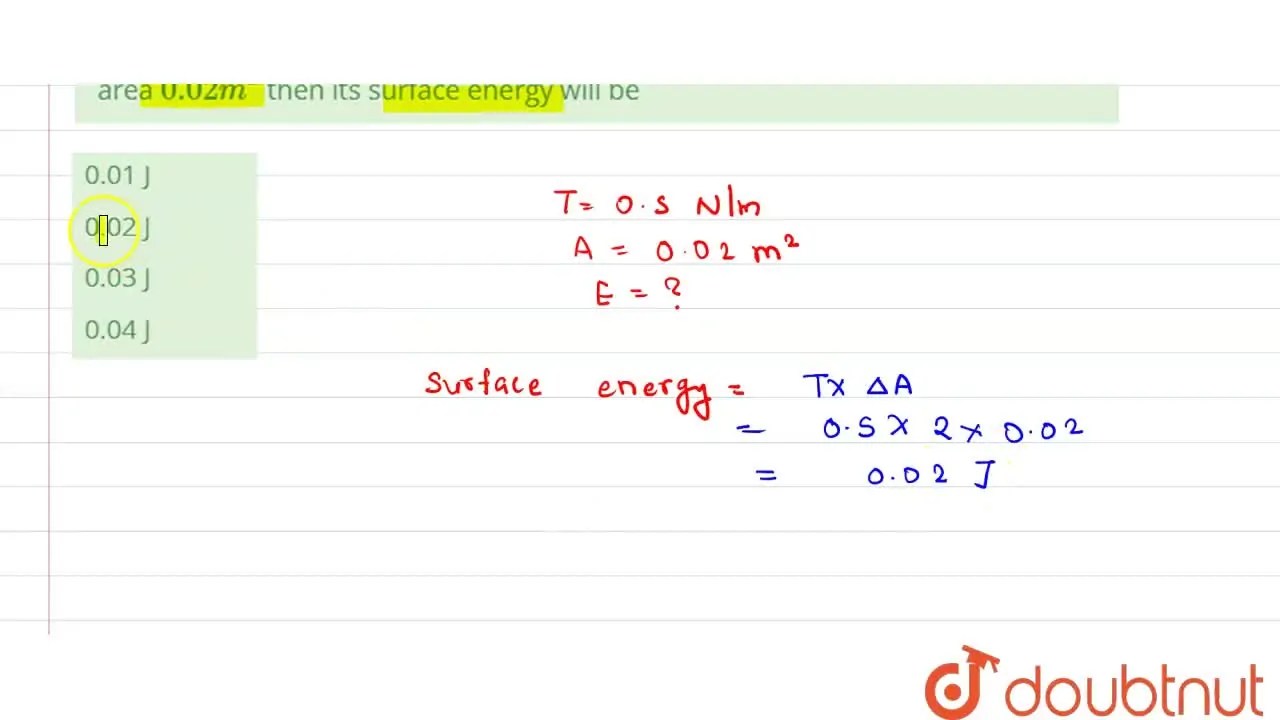 area 0.02m² then its surface energy will be
0.01 J
0.02 J
0.03 J
0.04 J
T= 0.5 N/m
A = 0.02 m²
E = ?
Surface energy = T× ΔA
= 0.5 × 2 × 0.02
= 0.02 J
doubtnut